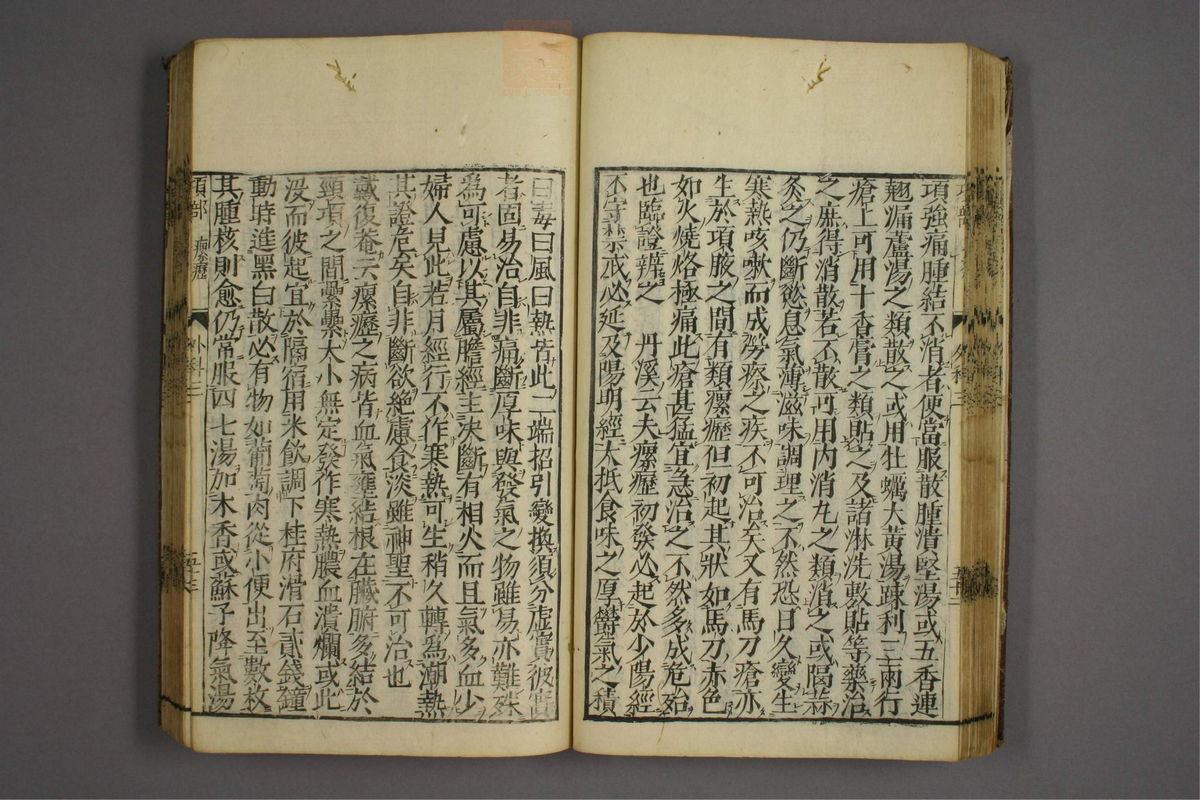 項強痛腫結不消者便當服散腫潰堅湯或五香連
翹漏蘆湯之類散之或用牡蠣大黃湯踈利三兩行
瘡上可用十香膏之類貼之及諸淋洗敷貼等藥治
之庶得消散若不散可用內消丸之類消之或隔蒜
灸之仍斷慾息氣薄滋味調理之不然恐日久變生
寒熱咳嗽而成勞瘵之疾不可治矣又有馬刀瘡亦
生於項腋之間有類瘰癧但初起其狀如馬刀赤色
如火燒烙極痛此瘡甚猛宜急治之不然多成危殆
也臨證辨之　丹溪云夫瘰癧初發必起於少陽經
不守禁戒必延及陽明經大抵食味之厚鬱氣之積
曰毒曰風曰熱皆此二端招引變換須分虛實彼實
者固易治自非痛斷厚味與發氣之物雖易亦難殊
為可慮以其屬膽經主決斷有相火而且氣多血少
婦人見此若月經行不作寒熱可生稍久轉為潮熱
其證危矣自非斷欲絕慮食淡雖神聖不可治也
戴復菴云瘰癧之病皆血氣壅結根在臟腑多結於
頸項之間纍纍大小無定發作寒熱膿血潰爛或此
沒而彼起宜於隔宿用米飲調下桂府滑石貳錢鐘
動時進黑白散必有物如葡萄肉從小便出至數枚
其腫核則愈仍常服四七湯加木香或蘇子降氣湯
項部　瘰癧　外科三　五十三